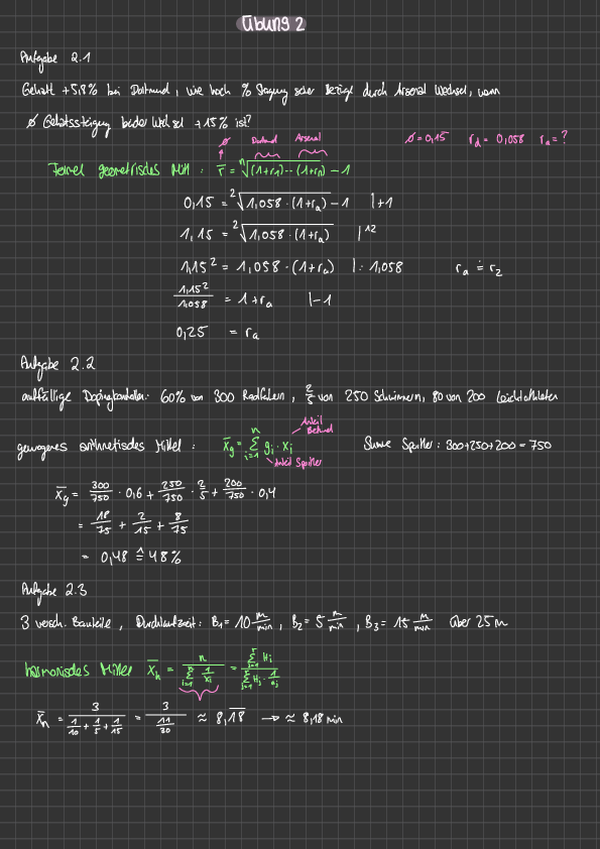 Übung 2
Aufgabe 2.1
Gehalt +5,8% bei Dortmund, wie hoch % Stegung seher Bezüge durch Arsenal Wechsel, wenn
ø Gehaltssteigung beider Wechsel +15% ist?
ø Dortmund Arsenal
ø = 0,15 r_d = 0,058 r_a = ?
Formel geometrisches Mittl : r̄ = ⁿ√((1+r₁)...(1+rₙ)) - 1
0,15 = ²√(1,058 · (1+r_a)) - 1 | +1
1,15 = ²√(1,058 · (1+r_a)) | ^2
1,15² = 1,058 · (1+r_a) | : 1,058 r_a ≐ r₂
1,15² / 1,058 = 1 + r_a | -1
0,25 = r_a
Aufgabe 2.2
auffällige Dopingkontrollen: 60% von 300 Radfahrern, 2/5 von 250 Schwimmern, 80 von 200 Leichtathleten
Anteil
Betrund
gewogenes arithmetisches Mittel : x̄_g = Σ_{i=1}^{n} g_i · x_i Summe Sportler : 300+250+200 = 750
Anteil Sportler
x̄_g = 300/750 · 0,6 + 250/750 · 2/5 + 200/750 · 0,4
= 18/75 + 2/15 + 8/75
= 0,48 ≙ 48%
Aufgabe 2.3
3 versch. Bauteile, Durchlaufzeit: B₁ = 10 m/min, B₂ = 5 m/min, B₃ = 15 m/min über 25 m
harmonisches Mittel x̄_h = n / Σ_{i=1}^{n} 1/x_i = Σ_{j=1}^{5} H_j / Σ_{j=1}^{5} H_j · 1/a_j
x̄_h = 3 / (1/10 + 1/5 + 1/15) = 3 / (11/30) ≈ 8,1̅8̅ → ≈ 8,18 min